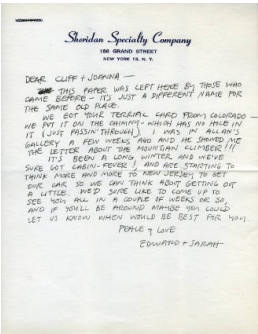 Sheridan Specialty Company
186 GRAND STREET
NEW YORK 13, N. Y.
DEAR CLIFF + JOANNA —
THIS PAPER WAS LEFT HERE BY THOSE WHO
CAME BEFORE — IT'S JUST A DIFFERENT NAME FOR
THE SAME OLD PLACE.
WE GOT YOUR TERRIAL CARD FROM COLORADO —
WE PUT IT ON THE CHIMNY — WHICH HAS NO MICE IN
IT (JUST PASSIN' THROUGH). I WAS IN ALLAN'S
GALLERY A FEW WEEKS AGO AND HE SHOWED ME
THE LETTER ABOUT THE MOUNTAIN CLIMBER!!!
IT'S BEEN A LONG, WINTER AND WE'VE
SURE GOT CABIN-FEVER, AND ARE STARTING TO
THINK MORE AND MORE TO NEW JERSEY TO GET
OUR CAR SO WE CAN THINK ABOUT GETTING OUT
A LITTLE. WE'D SURE LIKE TO COME UP TO
SEE YOU ALL IN A COUPLE OF WEEKS OR SO,
AND IF YOU'LL BE AROUND MAYBE YOU COULD
LET US KNOW WHEN WOULD BE BEST FOR YOU.
PEACE & LOVE
EDWARD + SARAH